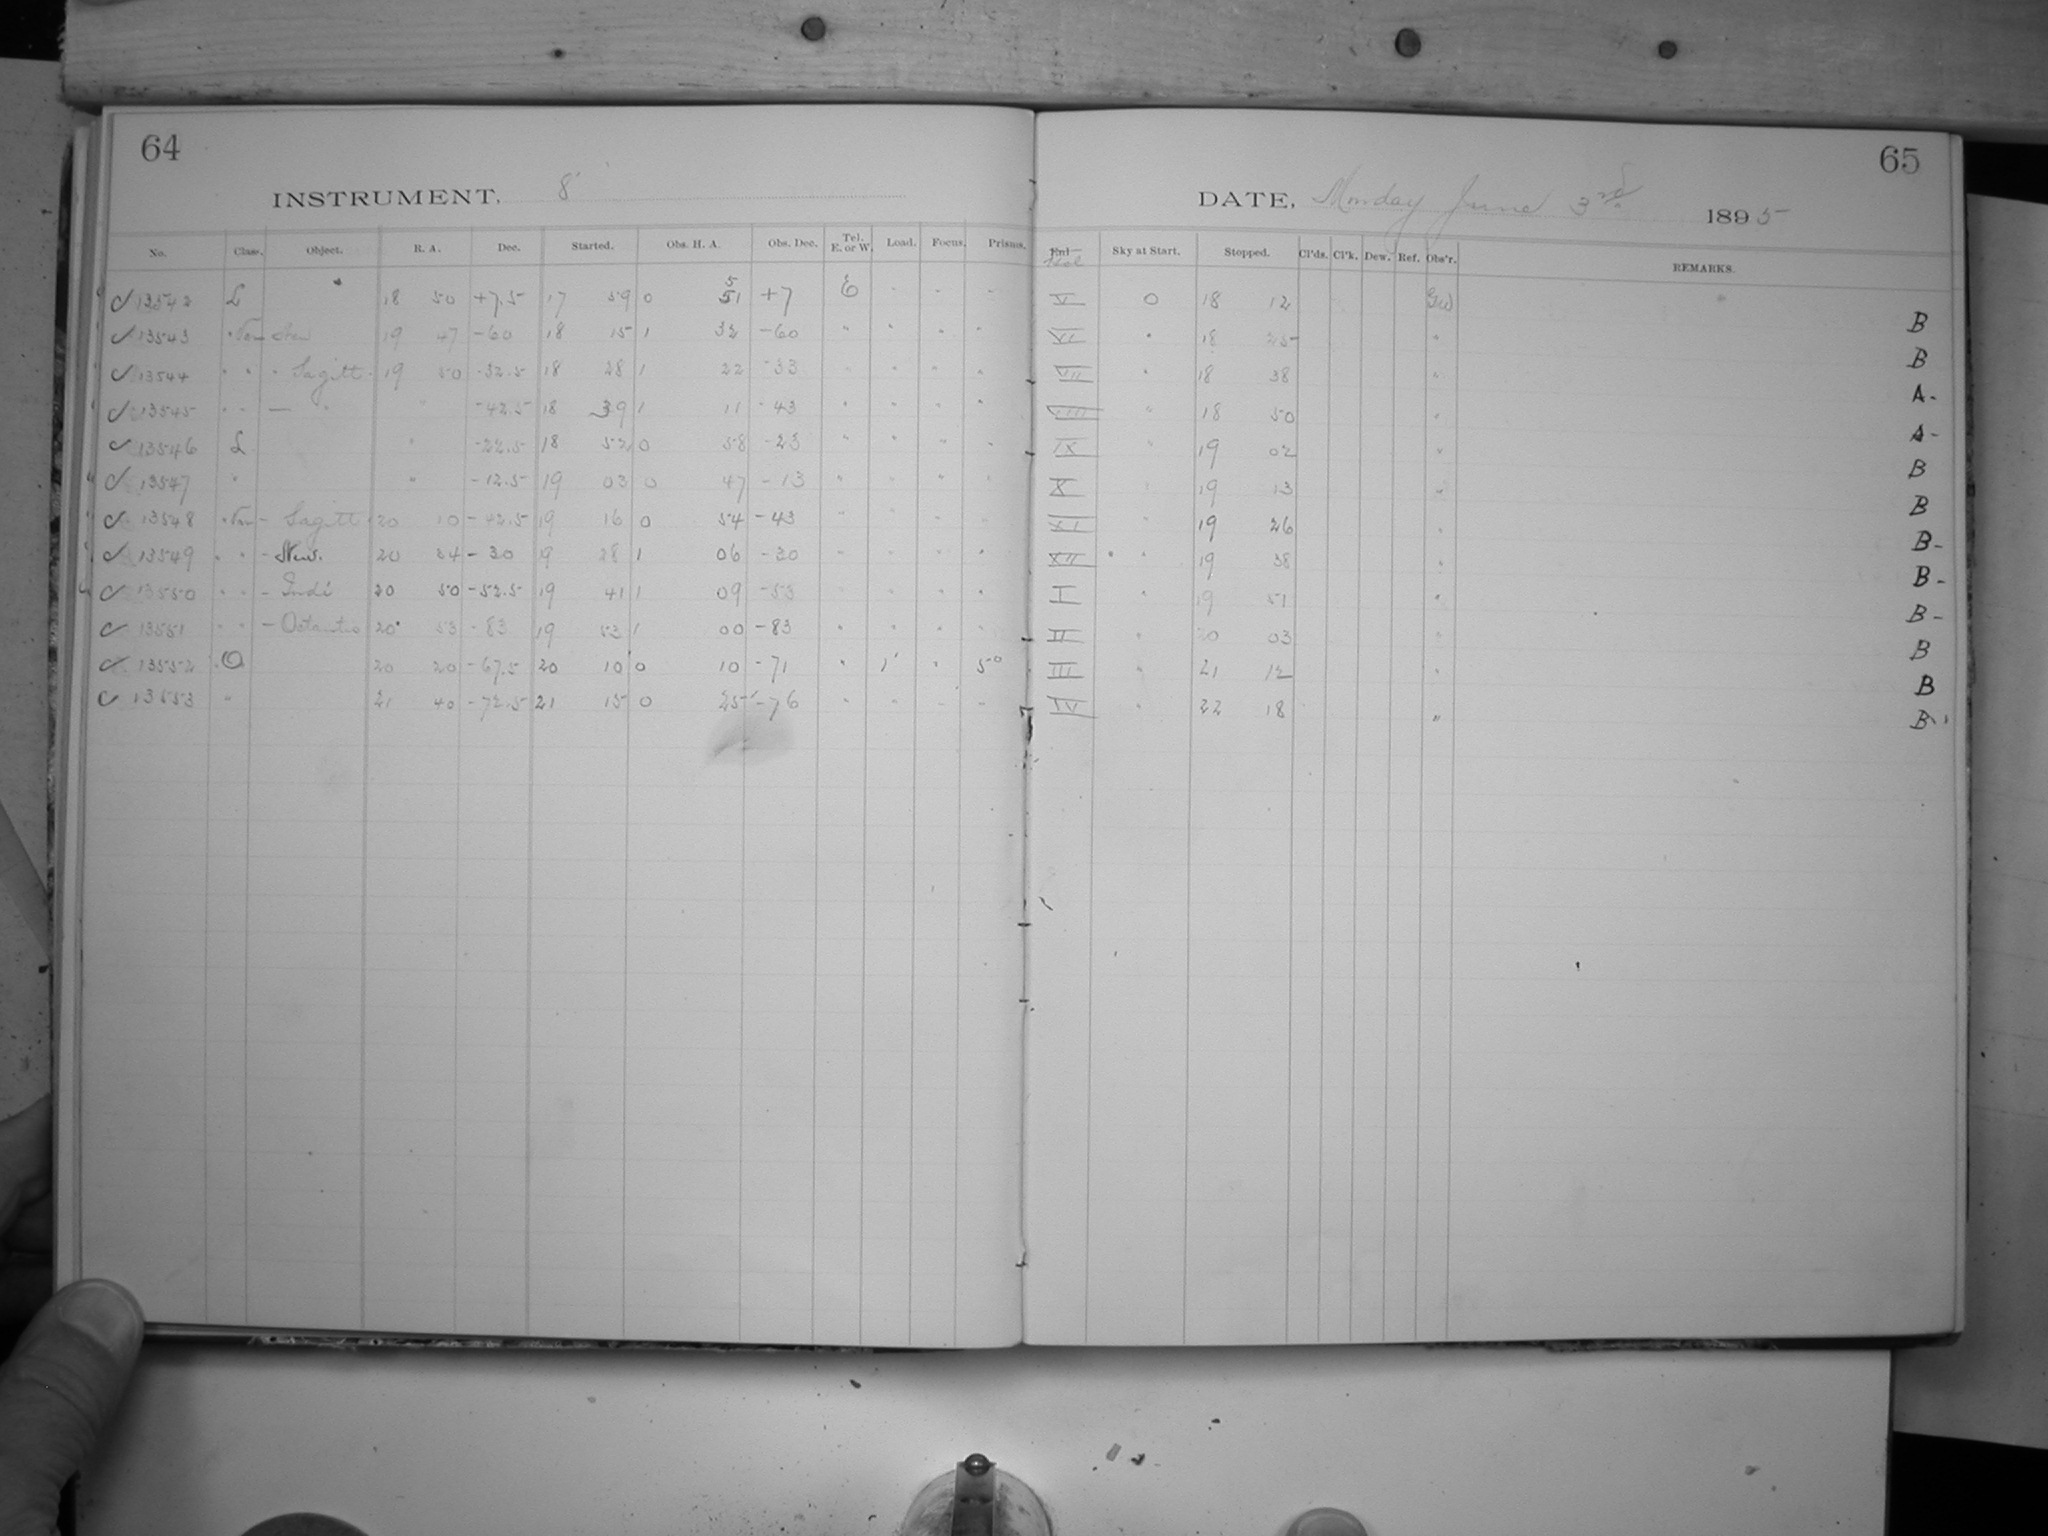 64
INSTRUMENT, 8
No. Class. Object. R. A. Dec. Started. Obs. H. A. Obs. Dec. Tel. E. or W. Load. Focus. Prisms.
13542 L 18 50 +7.5 17 59 0 51 +7 E
13543 19 47 -60 18 15 1 32 -60 " " " "
13544 " " - Sagitt. 19 50 -32.5 18 28 1 22 -33 " " " "
13545 " " — " " -42.5 18 39 1 11 -43 " " " "
13546 L " -22.5 18 52 0 58 -23 " " " "
13547 " " -12.5 19 03 0 47 -13 " " " "
13548 - Sagitt 20 10 -42.5 19 16 0 54 -43 " " " "
13549 " " - 20 34 -30 19 28 1 06 -30 " " " "
13550 " " - Indi 20 50 -52.5 19 41 1 09 -53 " " " "
13551 " " - Octantis 20 53 -83 19 53 1 00 -83 " " " "
13552 O 20 20 -67.5 20 10 0 10 -71 " 1' " 5°
13553 " 21 40 -72.5 21 15 0 25 -76 " " " "
65
DATE, Monday June 3rd 1895
Sky at Start. Stopped. Cl'ds. Cl'k. Dew. Ref. Obs'r. REMARKS.
V 0 18 12 B
VI " 18 25 " B
VII " 18 38 " A-
VIII " 18 50 " A-
IX " 19 02 " B
X " 19 13 " B
XI " 19 26 " B-
XII " 19 38 " B-
I " 19 51 " B-
II " 20 03 " B
III " 21 12 " B
IV " 22 18 " B